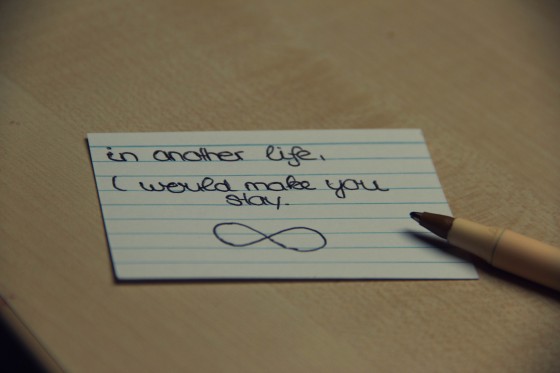 in another life,
I would make you
stay.